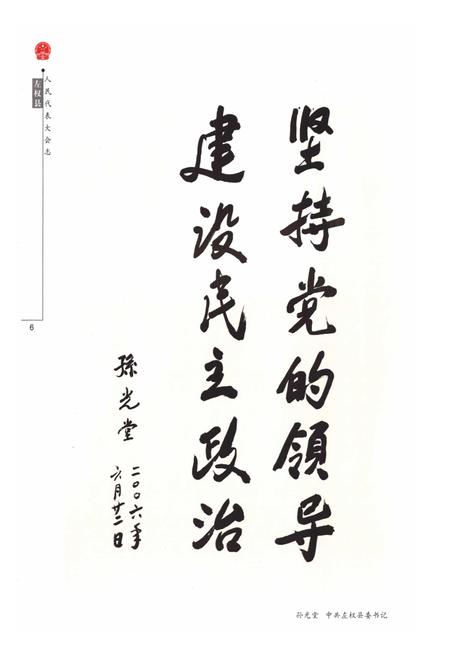 坚持党的領导
建设民主政治
孫光堂
二〇〇六年
六月廿二日
左权县
人民代表大会志
6
孙光堂 中共左权县委书记